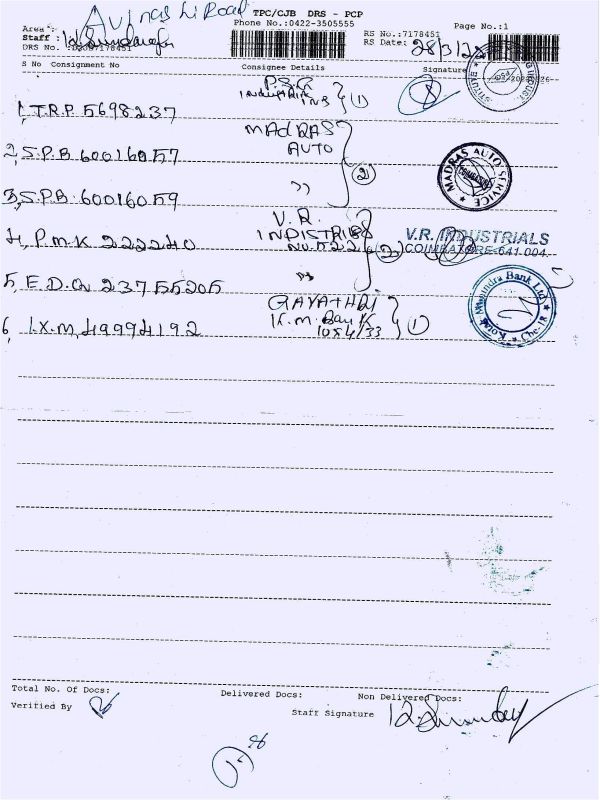 Avinashi Road
TPC/CJB DRS - PCP
Area :
Phone No.:0422-3505555
Page No.:1
Staff :
RS No.:7178451
DRS No. :
RS Date: 28/3/
S No Consignment No
Consignee Details
Signature
P.S.G
INS } (1)
1, T.R.P. 5698237
MADRAS
AUTO
2, S.P.B. 60016057
MADRAS AUTO SERVICE
" } (2)
3, S.P.B. 60016059
V.R.
INDISTRIES
NO.522 (2)
V.R. INDUSTRIALS
COIMBATORE-641 004.
4, P.M.K 222240
"
5, E.D.Q 23755205
GAYATHRI
K.M. Bank
1054/33 } (1)
Kotak Mahindra Bank Ltd.
6, I.X.M, 49994192
Total No. Of Docs:
Delivered Docs:
Non Delivered Docs:
Verified By
Staff Signature